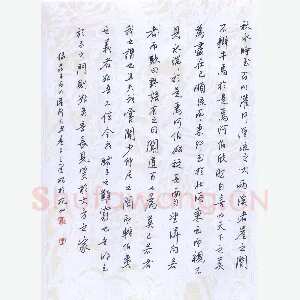 秋水時至百川灌河涇流之大兩涘渚崖之間
不辯牛馬於是焉河伯欣然自喜以天下之美
為盡在己順流而東行至於北海東面而視不
見水端於是焉河伯始旋其面目望洋向若
而歎曰野語有之曰聞道百以為莫己若者
我之謂也且夫我嘗聞少仲尼之聞而輕伯夷
之義者始吾弗信今我睹子之難窮也吾非至
於子之門則殆矣吾長見笑於大方之家